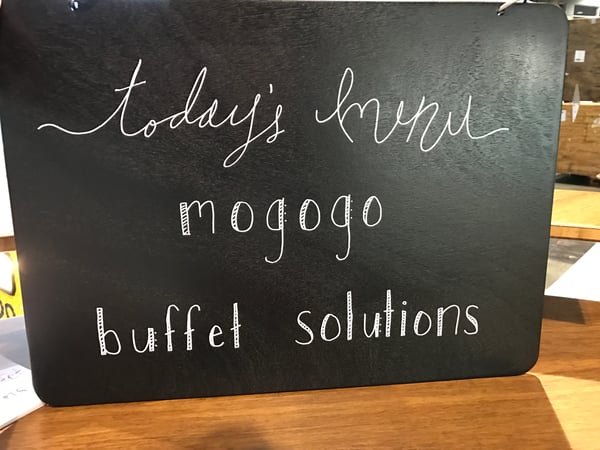 today's menu
mogogo
buffet solutions